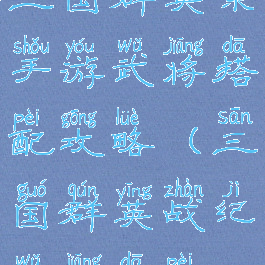 三国群英策
shǒu yóu wǔ jiāng dā
手游武将搭
pèi gōng lüè sān
配攻略（三
guó qún yīng zhàn jì
国群英战纪
wǔ jiāng dā pèi